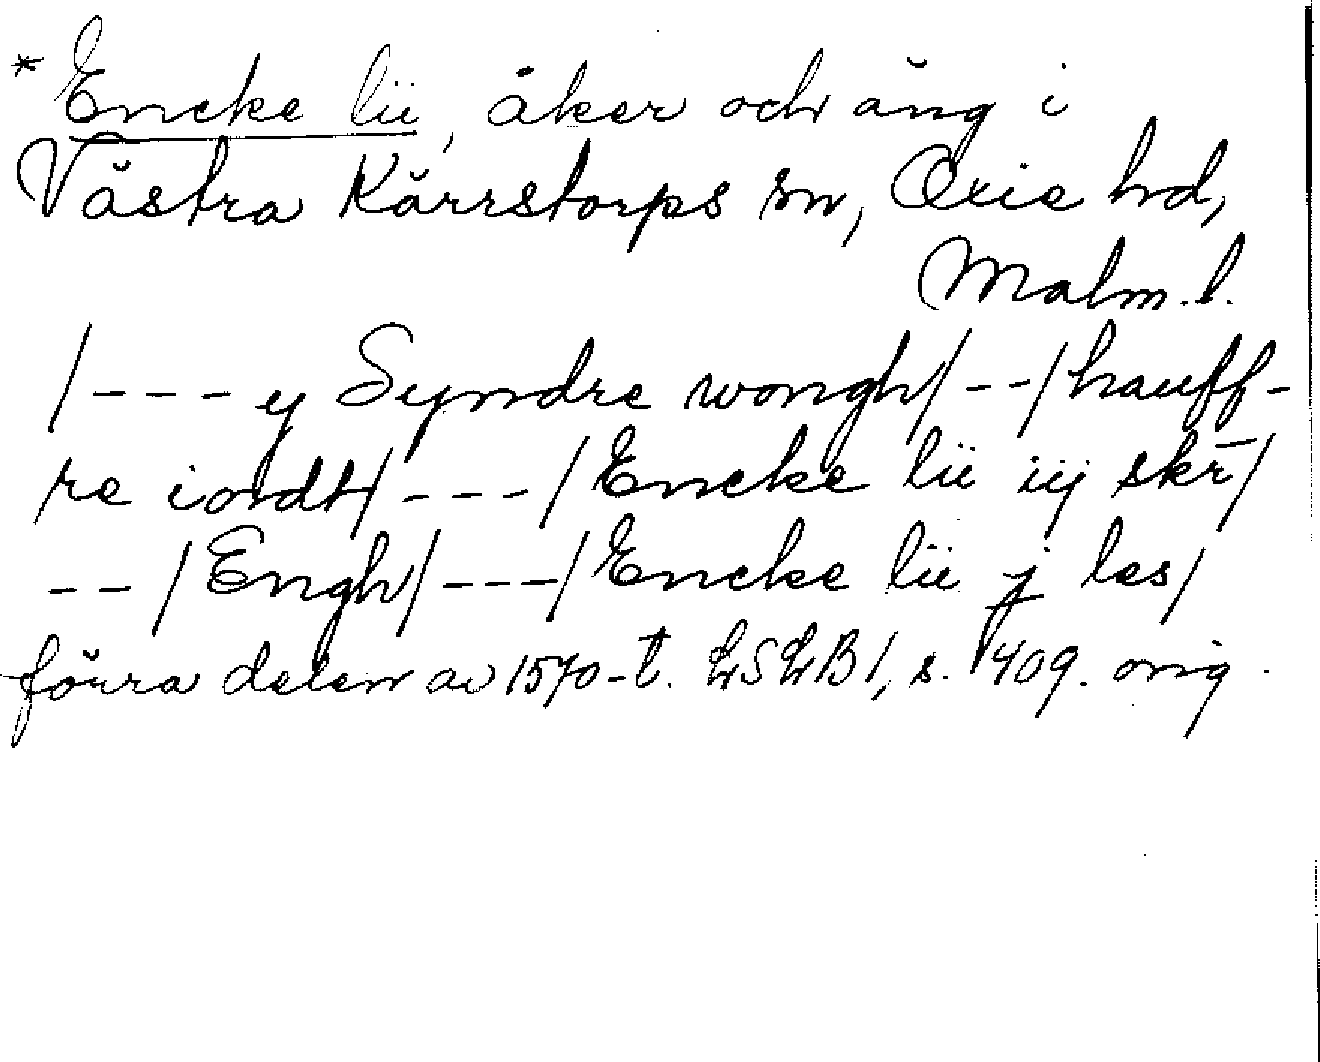 * Encke lii, åker och äng i
Västra Kärrstorps sn, Oxie hd,
Malm. l.
/---y Syndre wongh/--/hauff-
re iordt/---/Encke lii iij skr̄/
--/Engh/---/Encke lii j les/
förra delen av 1570-t. LSLB 1, s. 409. orig.